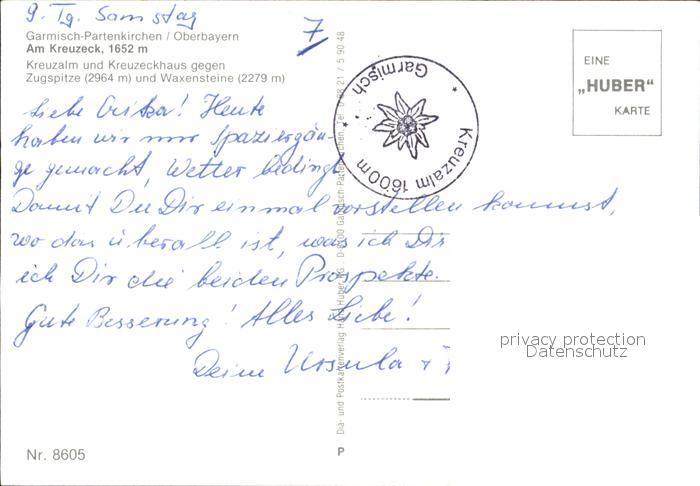 9. Tg. Samstag
7
Garmisch-Partenkirchen / Oberbayern
Am Kreuzeck, 1652 m
Kreuzalm und Kreuzeckhaus gegen
Zugspitze (2964 m) und Waxensteine (2279 m)
Liebe Erika! Heute
haben wir nur Spaziergän-
ge gemacht, Wetter bedingt
Damit Du Dir einmal vorstellen kannst,
wo das überall ist, was ich Dir
ich Dir die beiden Prospekte.
Gute Besserung! Alles Liebe!
Deine Ursula +
Garmisch
Kreuzalm 1600m
EINE
„HUBER"
KARTE
privacy protection
Datenschutz
Dia- und Postkartenverlag Huber D-8100 Garmisch-Partenkirchen, Tel. 0 88 21 / 5 90 48
Nr. 8605
P